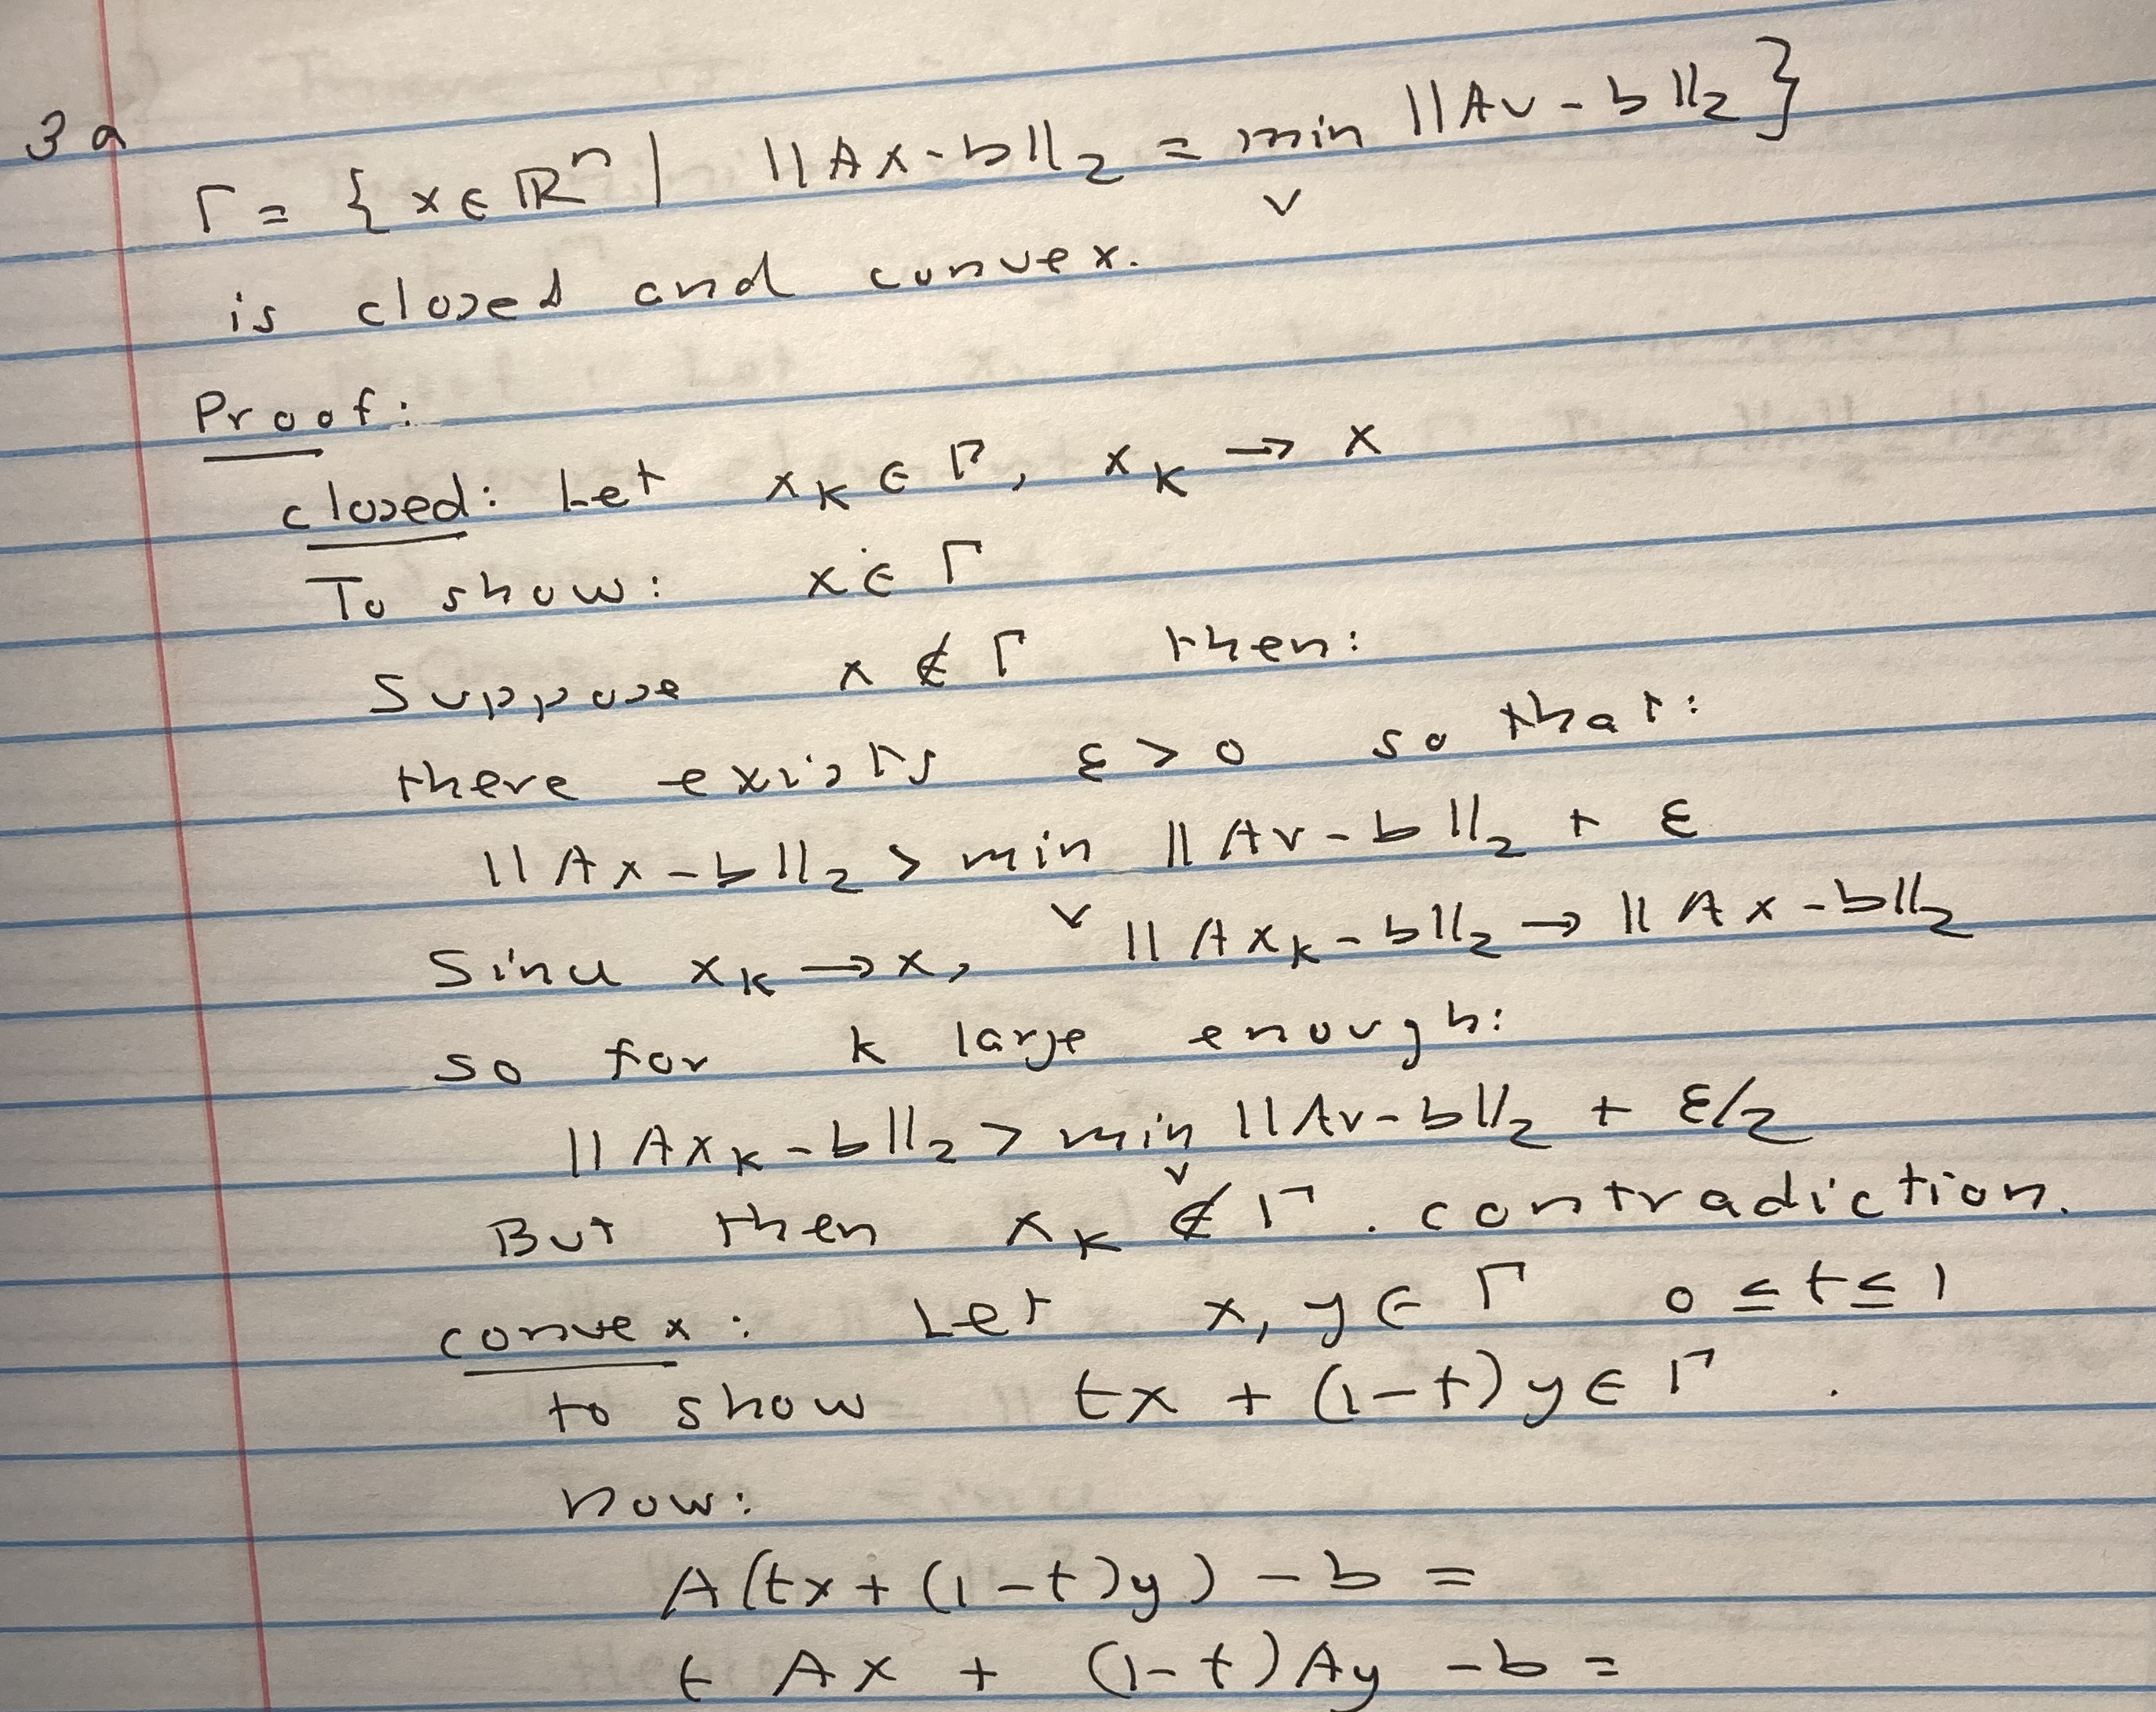 3a
Γ = { x ∈ ℝⁿ | ||Ax - b||₂ = min ||Av - b||₂ }
v
is closed and convex.
Proof:
closed: Let x_k ∈ Γ, x_k → x
To show: x ∈ Γ
Suppose x ∉ Γ then:
there exists ε > 0 so that:
||Ax - b||₂ > min ||Av - b||₂ + ε
v
Since x_k → x, ||Ax_k - b||₂ → ||Ax - b||₂
so for k large enough:
||Ax_k - b||₂ > min ||Av - b||₂ + ε/2
v
But then x_k ∉ Γ. contradiction.
convex: Let x, y ∈ Γ 0 ≤ t ≤ 1
to show tx + (1-t)y ∈ Γ.
now:
A(tx + (1-t)y) - b =
t Ax + (1-t)Ay - b =